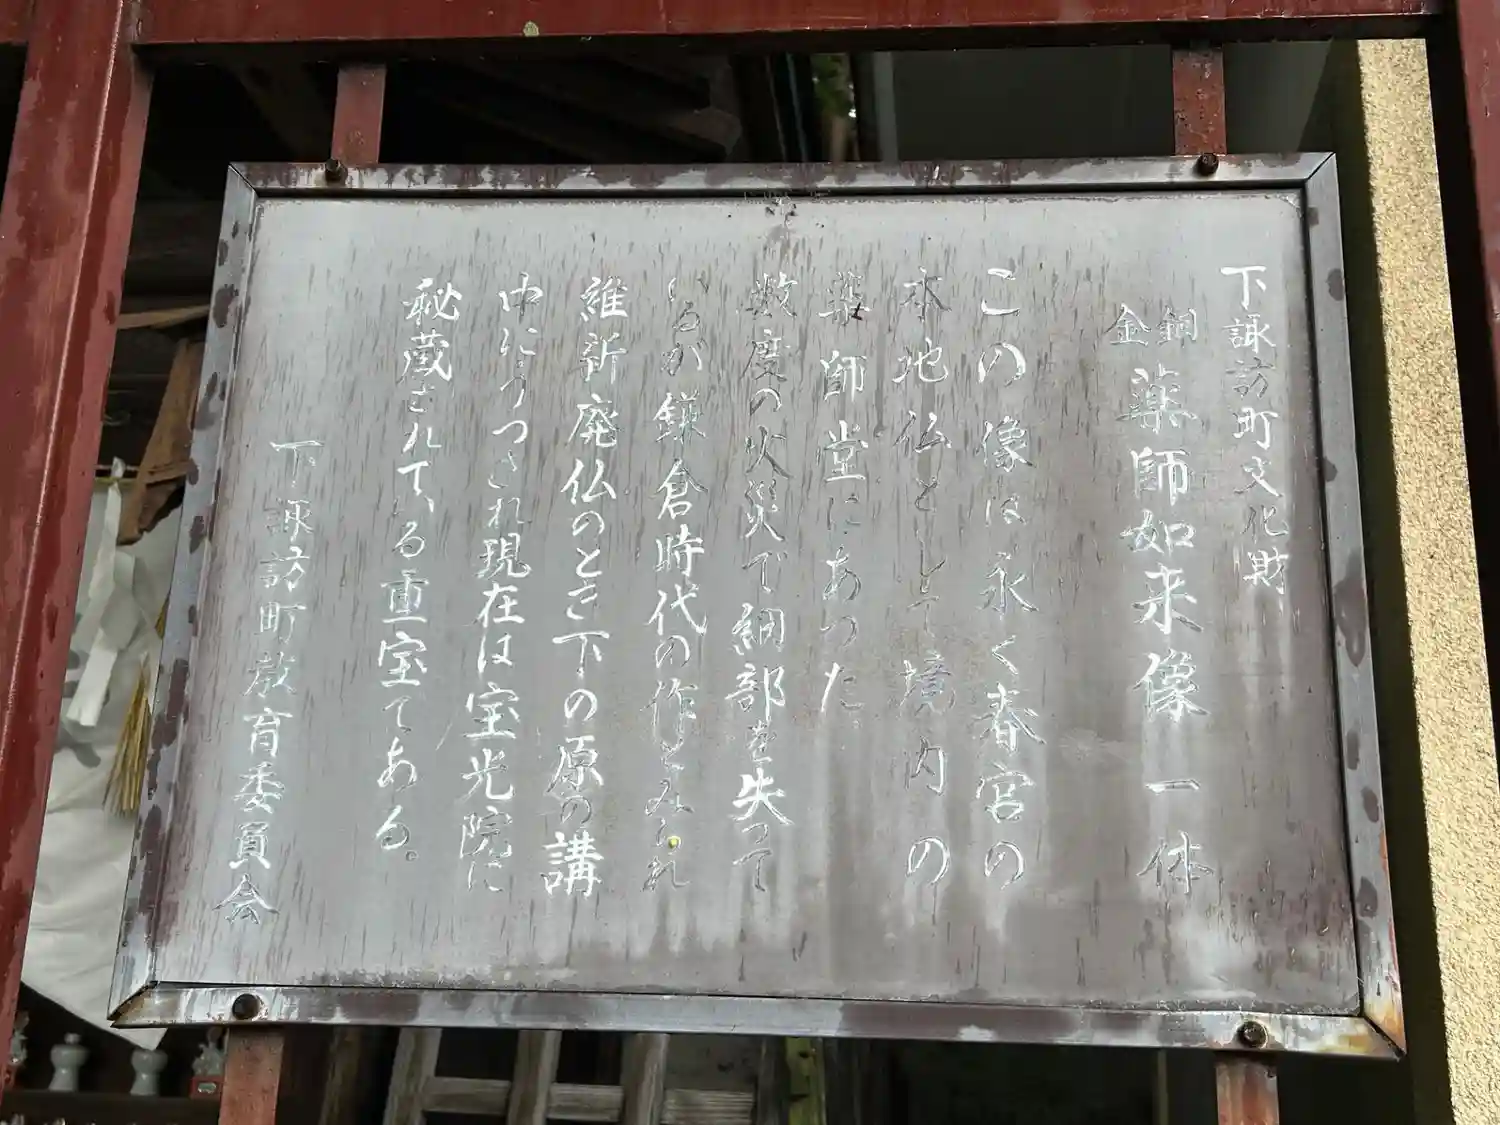 下諏訪町文化財
銅金 薬師如来像 一体
この像は永く春宮の
本地仏として境内の
薬師堂にあった
数度の火災で細部を失って
いるが鎌倉時代の作とみられ
維新廃仏のとき下の原の講
中にうつされ現在は宝光院に
秘蔵されている重宝てある。
下諏訪町教育委員会